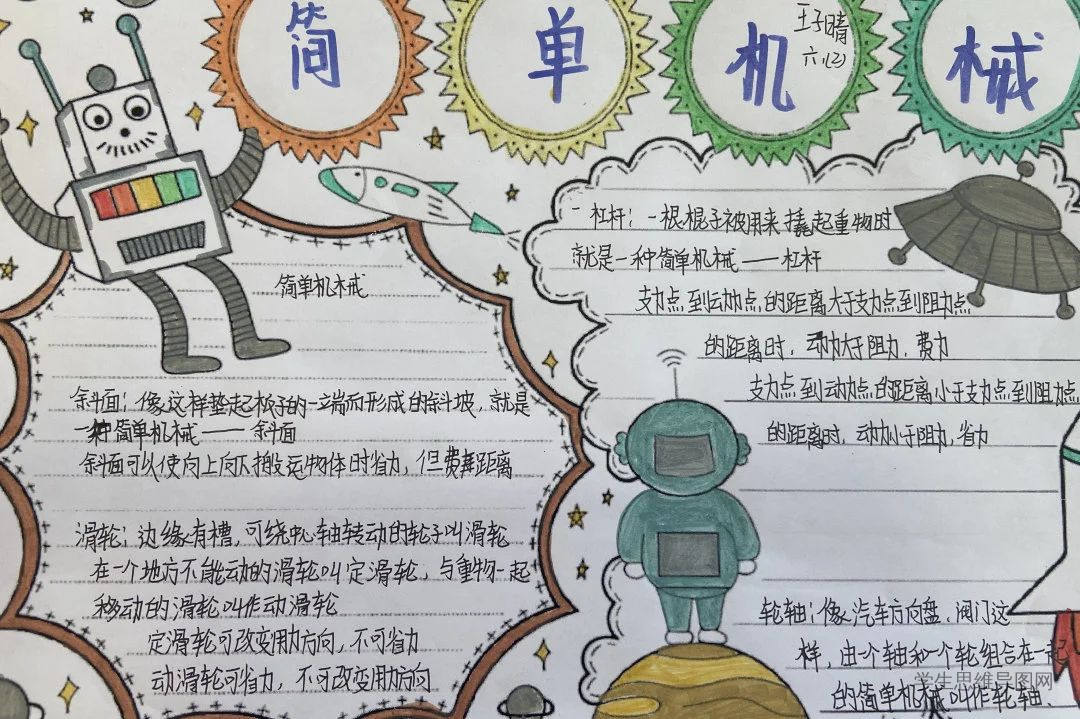 简单机械
王子晴
六(2)
简单机械
斜面：像这样垫起板子的一端而形成的斜坡，就是
一种简单机械——斜面
斜面可以使向上向下搬运物体时省力，但费距离
滑轮：边缘有槽，可绕中心轴转动的轮子叫滑轮
在一个地方不能动的滑轮叫定滑轮，与重物一起
移动的滑轮叫作动滑轮
定滑轮可改变用力方向，不可省力
动滑轮可省力，不可改变用力方向
一杠杆：一根棍子被用来撬起重物时
就是一种简单机械——杠杆
支力点到动力点的距离大于支力点到阻力点
的距离时，动力大于阻力，费力
支力点到动力点的距离小于支力点到阻力点
的距离时，动力小于阻力，省力
轮轴：像汽车方向盘、阀门这
样，由一个轴和一个轮组合在一起
的简单机械叫作轮轴、
学生思维导图网